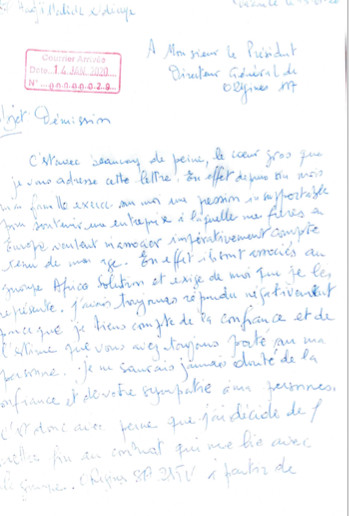 Courrier Arrivée
Date 14 JAN. 2020
N° 00000029
A Monsieur le Président
Directeur Général de
Objet Démission
C'est avec beaucoup de peine, le cœur gros que
je vous adresse cette lettre. En effet depuis un mois
ma famille exerce sur moi une pression insupportable
pour soutenir une entreprise à laquelle mes frères
Europe veulent m'associer impérativement compte
tenu de mon age. En effet ils sont associés au
groupe Africa Solution et exige de moi que je les
représente. J'ai toujours répondu négativement
parce que je tiens compte de la confiance et de
l'estime que vous avez toujours porté sur ma
personne. Je ne saurais jamais douté de la
confiance et de votre sympathie à ma personne.
C'est donc avec peine que j'ai décidé de
mettre fin au contrat qui me lie avec
le groupe. à partir de